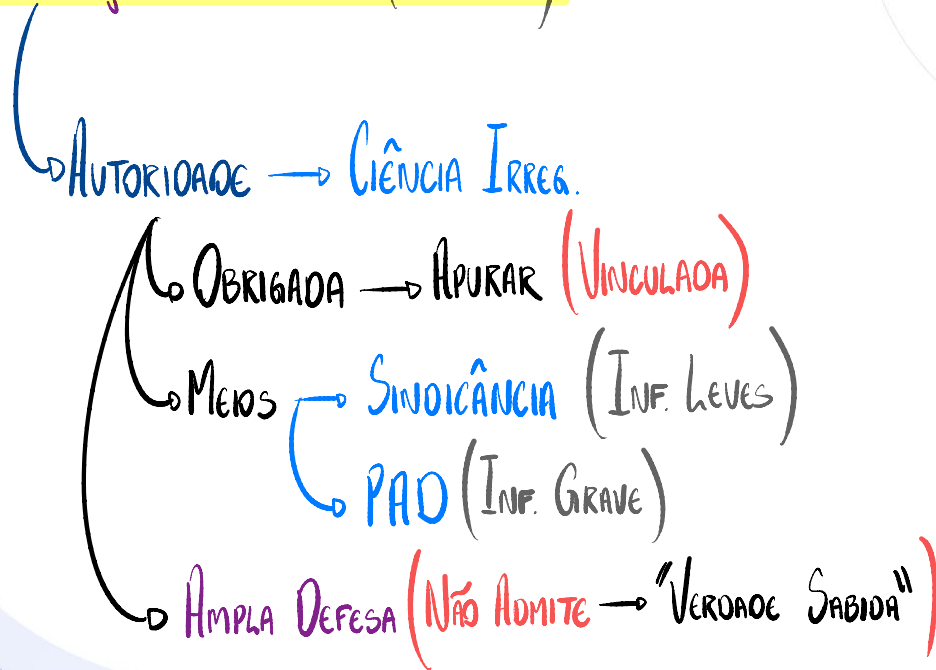 AUTORIDADE → CIÊNCIA IRREG.
OBRIGADA → APURAR (VINCULADA)
MEIOS → SINDICÂNCIA (INF. LEVES)
PAD (INF. GRAVE)
AMPLA DEFESA (NÃO ADMITE → "VERDADE SABIDA")